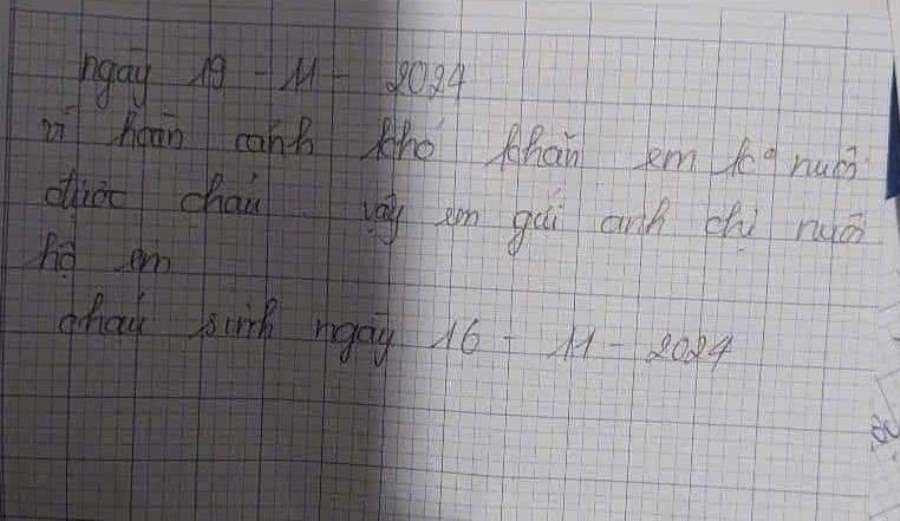 ngày 19 - 11 - 2024
vì hoàn cảnh khó khăn em k° nuôi
được cháu vậy em gái anh chị nuôi
hộ em
cháu sinh ngày 16 - 11 - 2024